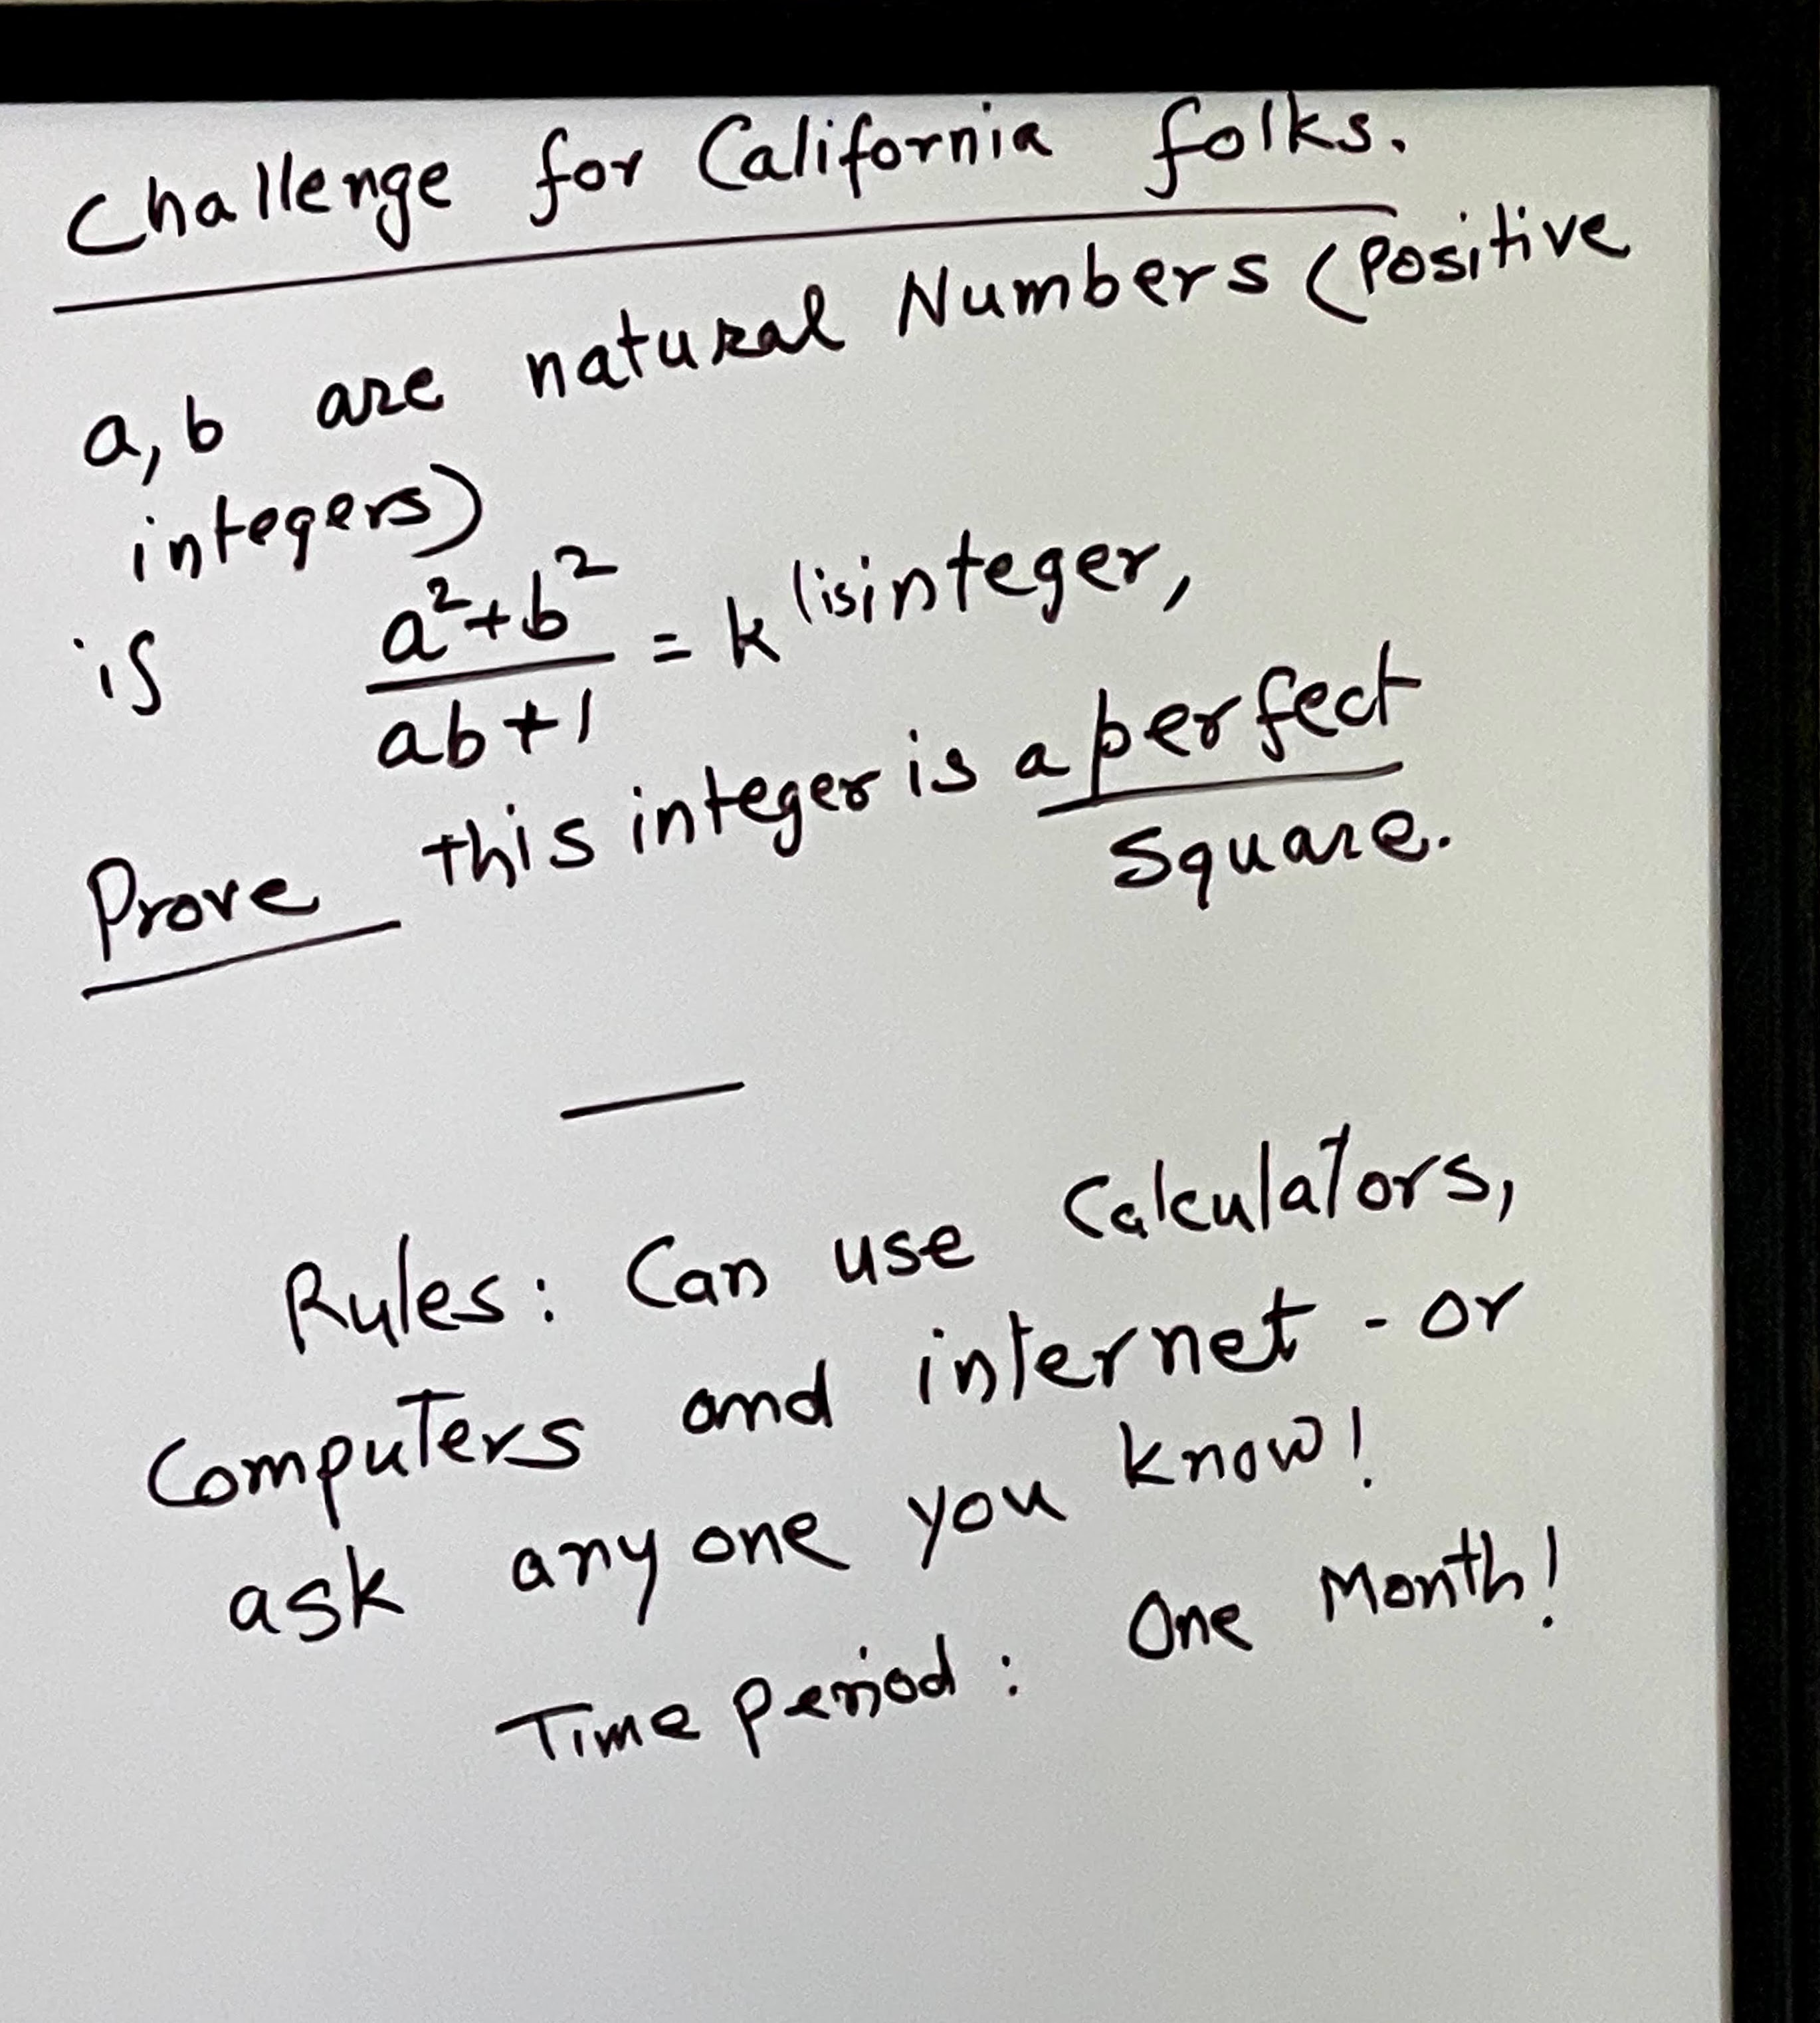 Challenge for California folks.
a, b are natural Numbers (Positive
integers)
if a²+b²/ab+1 = k (is integer,
Prove this integer is a perfect
Square.
Rules: Can use Calculators,
Computers and internet - or
ask any one you know!
Time Period: One Month!